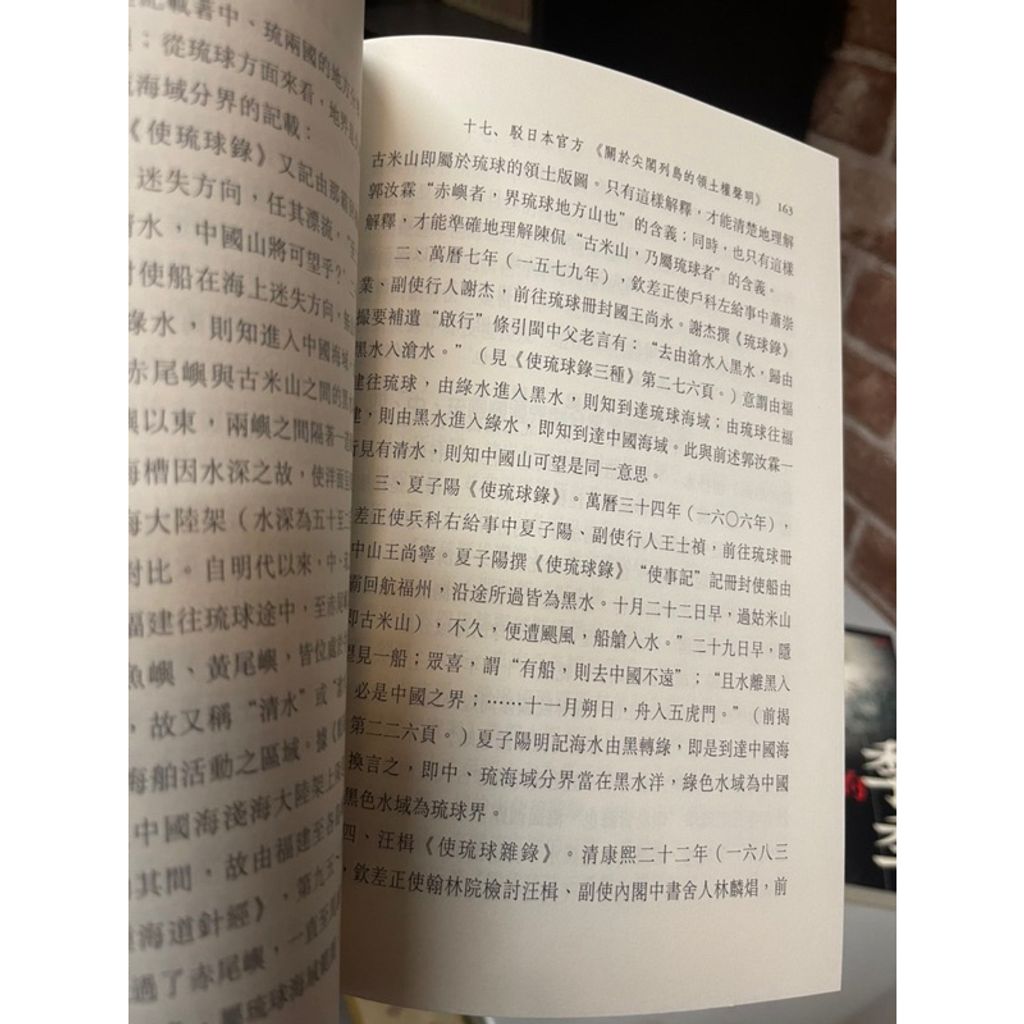 記載著中、琉兩國的地方分
；從琉球方面來看，地界是
海域分界的記載：
《使琉球錄》又記由那霸
迷失方向，任其漂流，
清水，中國山將可望乎？
封使船在海上迷失方向，
綠水，則知進入中國海域
赤尾嶼與古米山之間的黑
嶼以東，兩嶼之間隔著一
海槽因水深之故，使洋面
海大陸架（水深為五十至二
對比。自明代以來，中、
福建往琉球途中，至赤尾
魚嶼、黃尾嶼，皆位處
，故又稱“清水”或
海舶活動之區域。據
中國海淺海大陸架上
其間，故由福建至
海道針經》、第九五
過了赤尾嶼，一直至
屬琉球海域
十七、駁日本官方《關於尖閣列島的領土權聲明》 163
古米山即屬於琉球的領土版圖。只有這樣解釋，才能清楚地理解
郭汝霖“赤嶼者，界琉球地方山也”的含義；同時，也只有這樣
解釋，才能準確地理解陳侃“古米山，乃屬琉球者”的含義。
二、萬曆七年（一五七九年），欽差正使戶科左給事中蕭崇
業、副使行人謝杰，前往琉球冊封國王尚永。謝杰撰《琉球錄》
撮要補遺“啟行”條引閩中父老言有：“去由滄水入黑水，歸由
黑水入滄水。”（見《使琉球錄三種》第二七六頁。）意謂由福
建往琉球，由綠水進入黑水，則知到達琉球海域；由琉球往福
建，則由黑水進入綠水，即知到達中國海域。此與前述郭汝霖一
行見有清水，則知中國山可望是同一意思。
三、夏子陽《使琉球錄》。萬曆三十四年（一六〇六年），
差正使兵科右給事中夏子陽、副使行人王士禎，前往琉球冊
中山王尚寧。夏子陽撰《使琉球錄》“使事記”記冊封使船由
霸回航福州，沿途所過皆為黑水。十月二十二日早，過姑米山
即古米山），不久，便遭颶風，船艙入水。”二十九日早，隱
見一船；眾喜，謂“有船，則去中國不遠”；“且水離黑入
必是中國之界；……十一月朔日，舟入五虎門。”（前揭
第二二六頁。）夏子陽明記海水由黑轉綠，即是到達中國海
換言之，即中、琉海域分界當在黑水洋，綠色水域為中國
黑色水域為琉球界。
四、汪楫《使琉球雜錄》。清康熙二十二年（一六八三
，欽差正使翰林院檢討汪楫、副使內閣中書舍人林麟焻，前